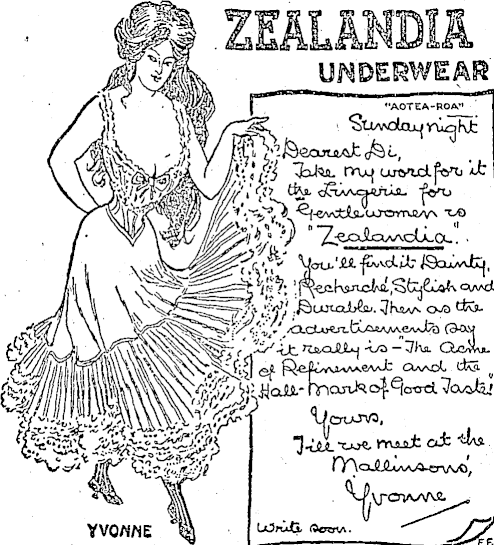 ZEALANDIA
UNDERWEAR
"AOTEA-ROA"
Sunday night
Dearest Di,
Take my word for it
the Lingerie for
Gentlewomen is
"Zealandia".
You'll find it Dainty,
Recherché, Stylish and
Durable. Then as the
advertisements say
it really is - "The Acme
of Refinement and the
Hall-Mark of Good Taste"
Yours,
Till we meet at the
Mallinsons',
Yvonne
Write soon.
F.F.
YVONNE